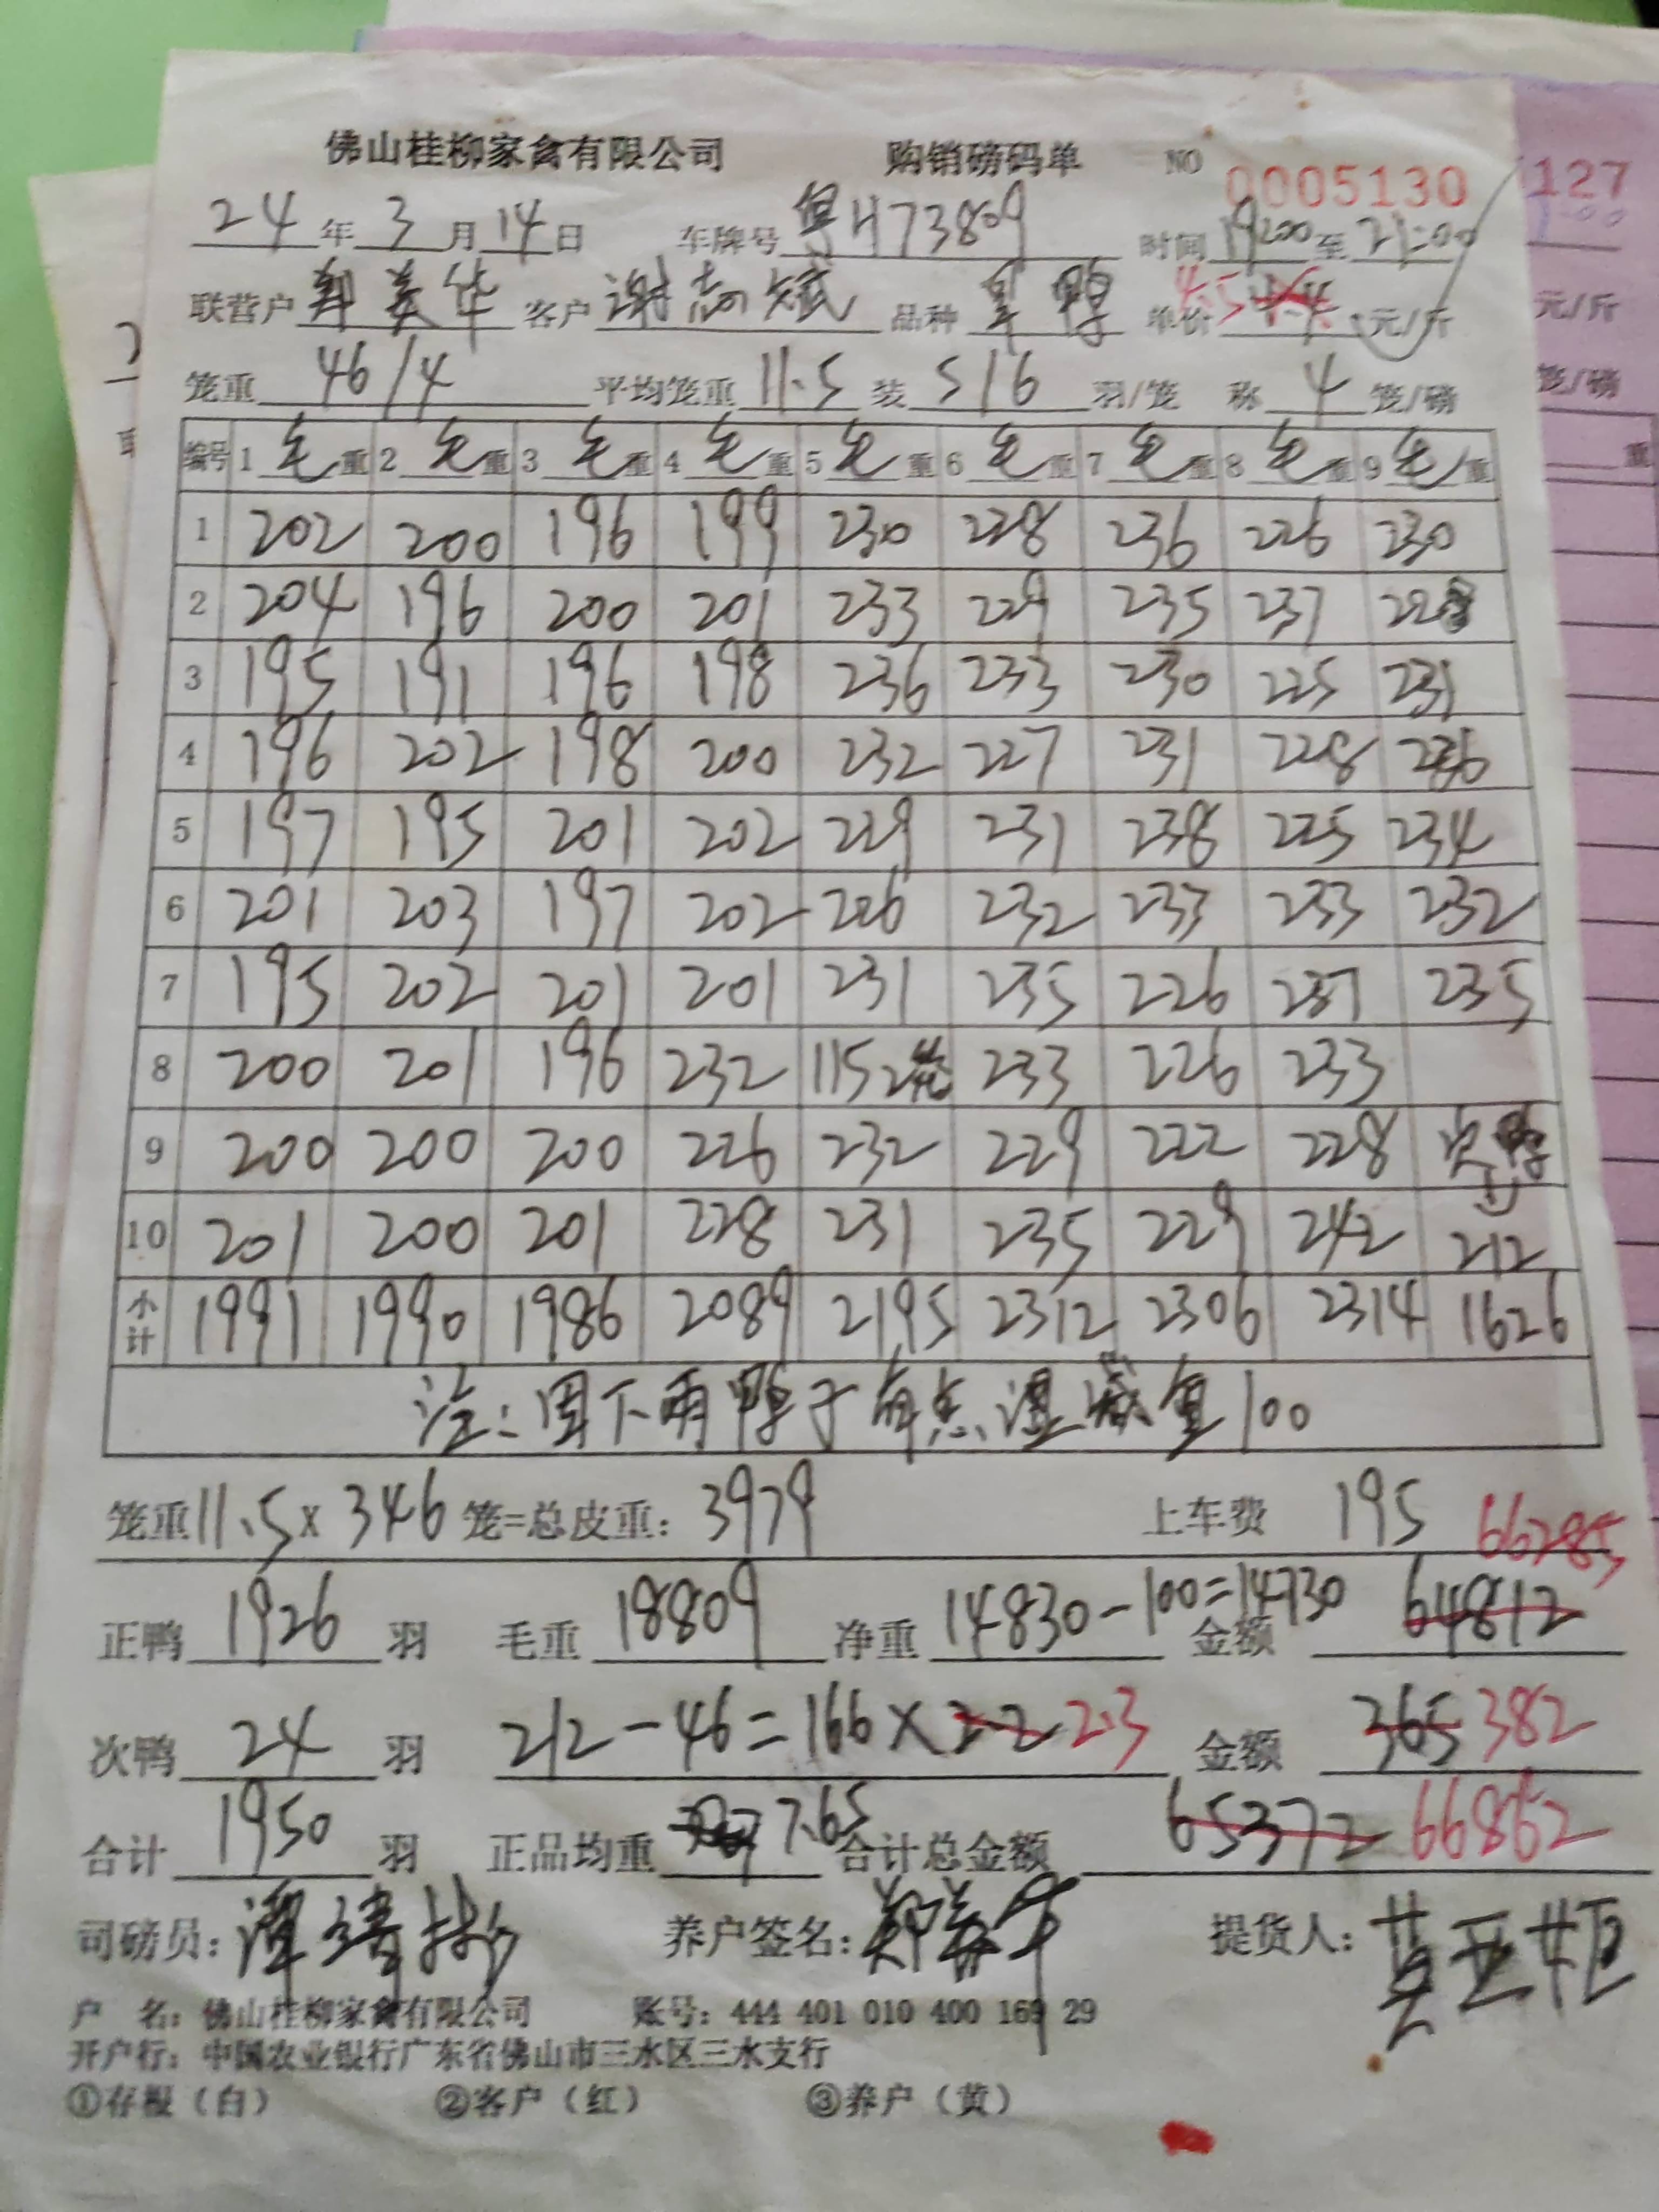 佛山桂柳家禽有限公司 购销磅码单 NO 0005130
127
24 年 3 月 14 日 车牌号 粤H73809 时间 19:00 至 21:00
联营户 郑美华 客户 谢志斌 品种 单价 4.5 4.4 元/斤
元/斤
笼重 46/4 平均笼重 11.5 装 5/6 羽/笼 称 4 笼/磅
笼/磅
编号 1 毛 重 2 毛 重 3 毛 重 4 毛 重 5 毛 重 6 毛 重 7 毛 重 8 毛 重 9 毛 重
重
1 202 200 196 199 230 228 236 226 230
2 204 196 200 201 233 229 235 237 228
3 195 191 196 198 236 233 230 225 231
4 196 202 198 200 232 227 231 228 236
5 197 195 201 202 229 231 238 225 234
6 201 203 197 202 226 232 233 233 232
7 195 202 201 201 231 235 226 237 235
8 200 201 196 232 115 2笼 233 226 233
9 200 200 200 226 232 229 222 228 次鸭
10 201 200 201 228 231 235 229 242 212
小计 1991 1990 1986 2089 2195 2312 2306 2314 1626
注:因下雨鸭子有点湿减重100
笼重 11.5 x 346 笼=总皮重: 3979 上车费 195
66285
正鸭 1926 羽 毛重 18809 净重 14830-100=14730 金额 64812
次鸭 24 羽 212-46=166×2.2 2.3 金额 365 382
合计 1950 羽 正品均重 7.65 合计总金额 65372 66862
司磅员: 养户签名: 郑美华 提货人:
户 名: 佛山桂柳家禽有限公司 账号: 444 401 010 400 169 29
开户行: 中国农业银行广东省佛山市三水区三水支行
①存根(白) ②客户(红) ③养户(黄)